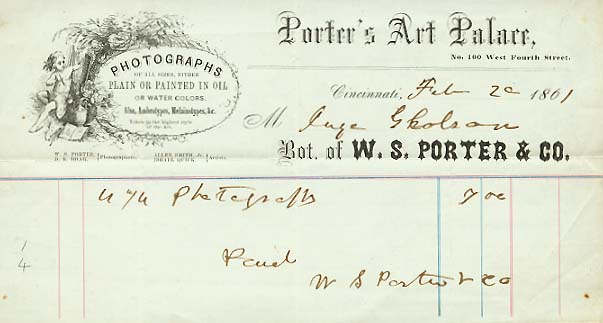 PHOTOGRAPHS
OF ALL SIZES, EITHER
PLAIN OR PAINTED IN OIL
OR WATER COLORS.
Also, Ambrotypes, Melainotypes, &c.
Taken in the highest style
of the Art.
W. S. PORTER, Photographers.
ALLEN SMITH, Jr. Artists.
Porter's Art Palace,
No. 100 West Fourth Street.
Cincinnati, Feb 20 1861
M Gholson
Bot. of W. S. PORTER & CO.
Photographs 7 00
Paid
W S Porter & Co
1
4